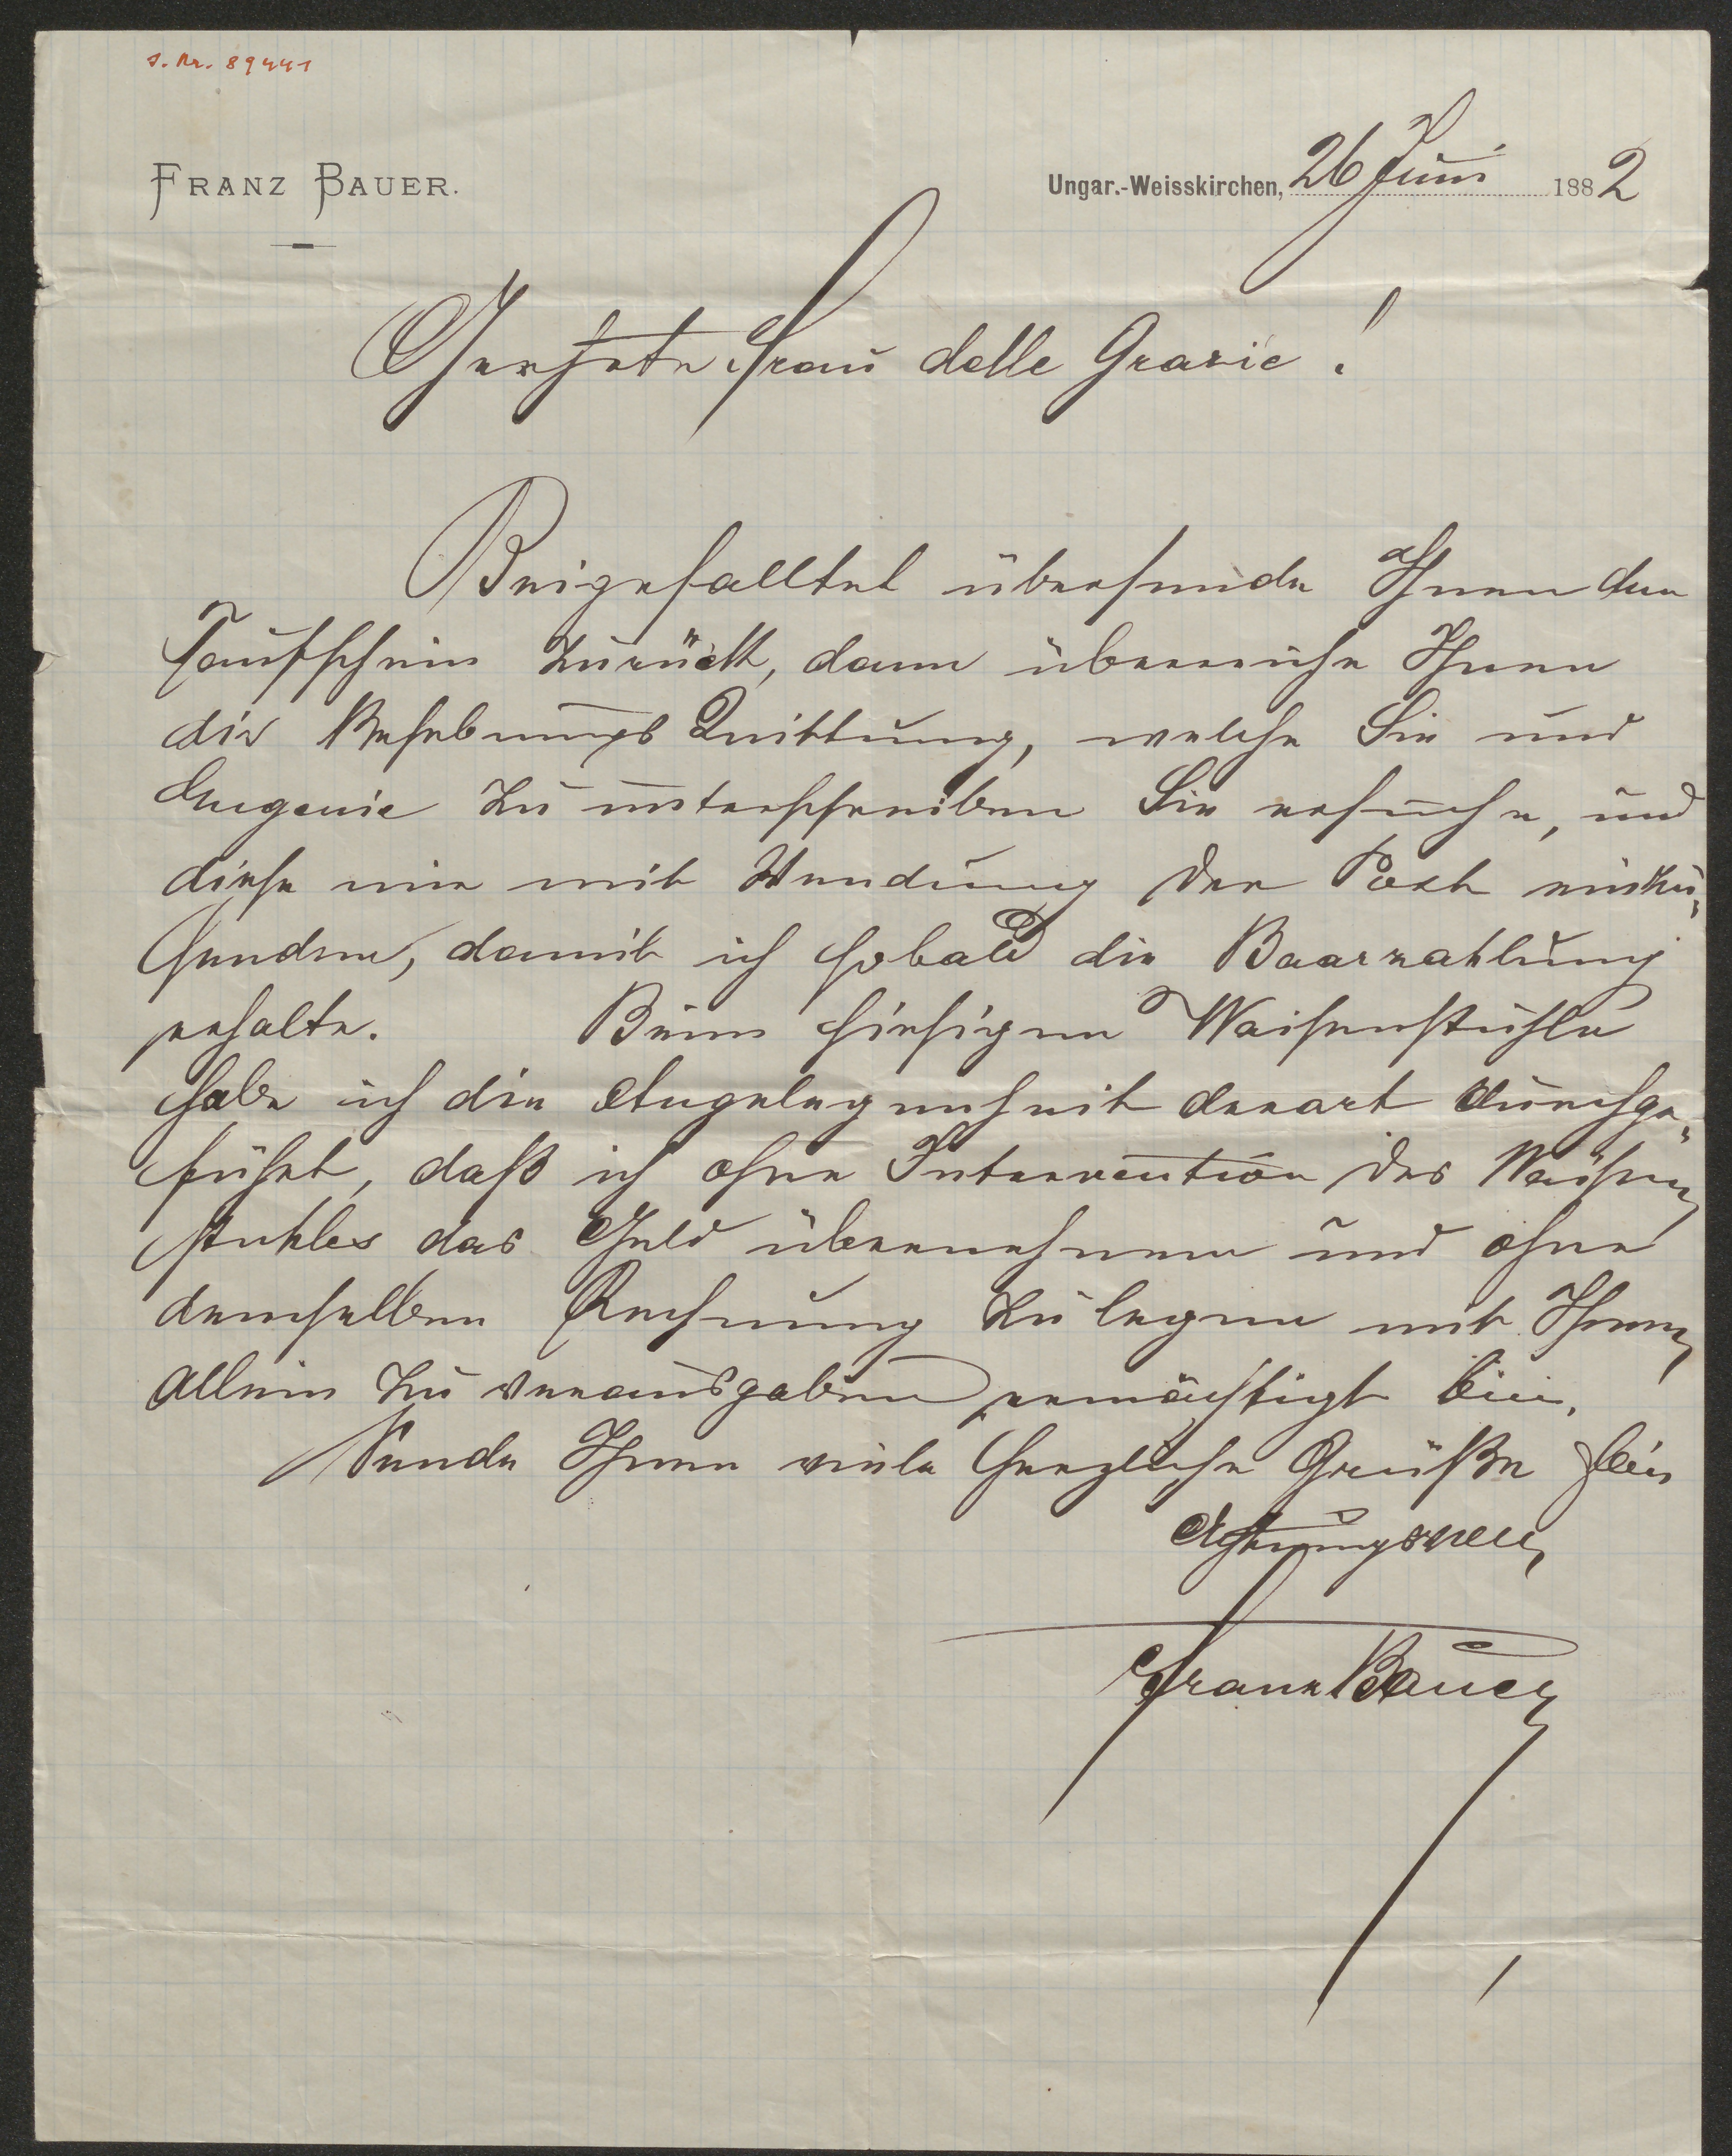 I. Nr. 89441
FRANZ BAUER.
Ungar.-Weisskirchen, 26 Juni 1882
Geehrte Frau delle Grazie!
Beigefalltet übersende Ihnen den
Taufschein zurück, dann überreiche Ihnen
die Behebungs Quittung, welche Sie und
Eugenie zu unterschreiben Sie ersuche, und
diese mir mit Wendung der Post einzu„
senden, damit ich sobald die Baarzahlung
erhalte. Beim hiesigen Waisenstuhle
habe ich die Angelegenheit derart durchge„
führt, daß ich ohne Intervention des Waisen
stuhles das Geld übernehmen und ohne
demselben Rechnung zu legen mit Ihnen
allein zu verausgaben ermächtigt bin.
Sende Ihnen viele herzliche Grüße
Achtungsvoll
Franz Bauer